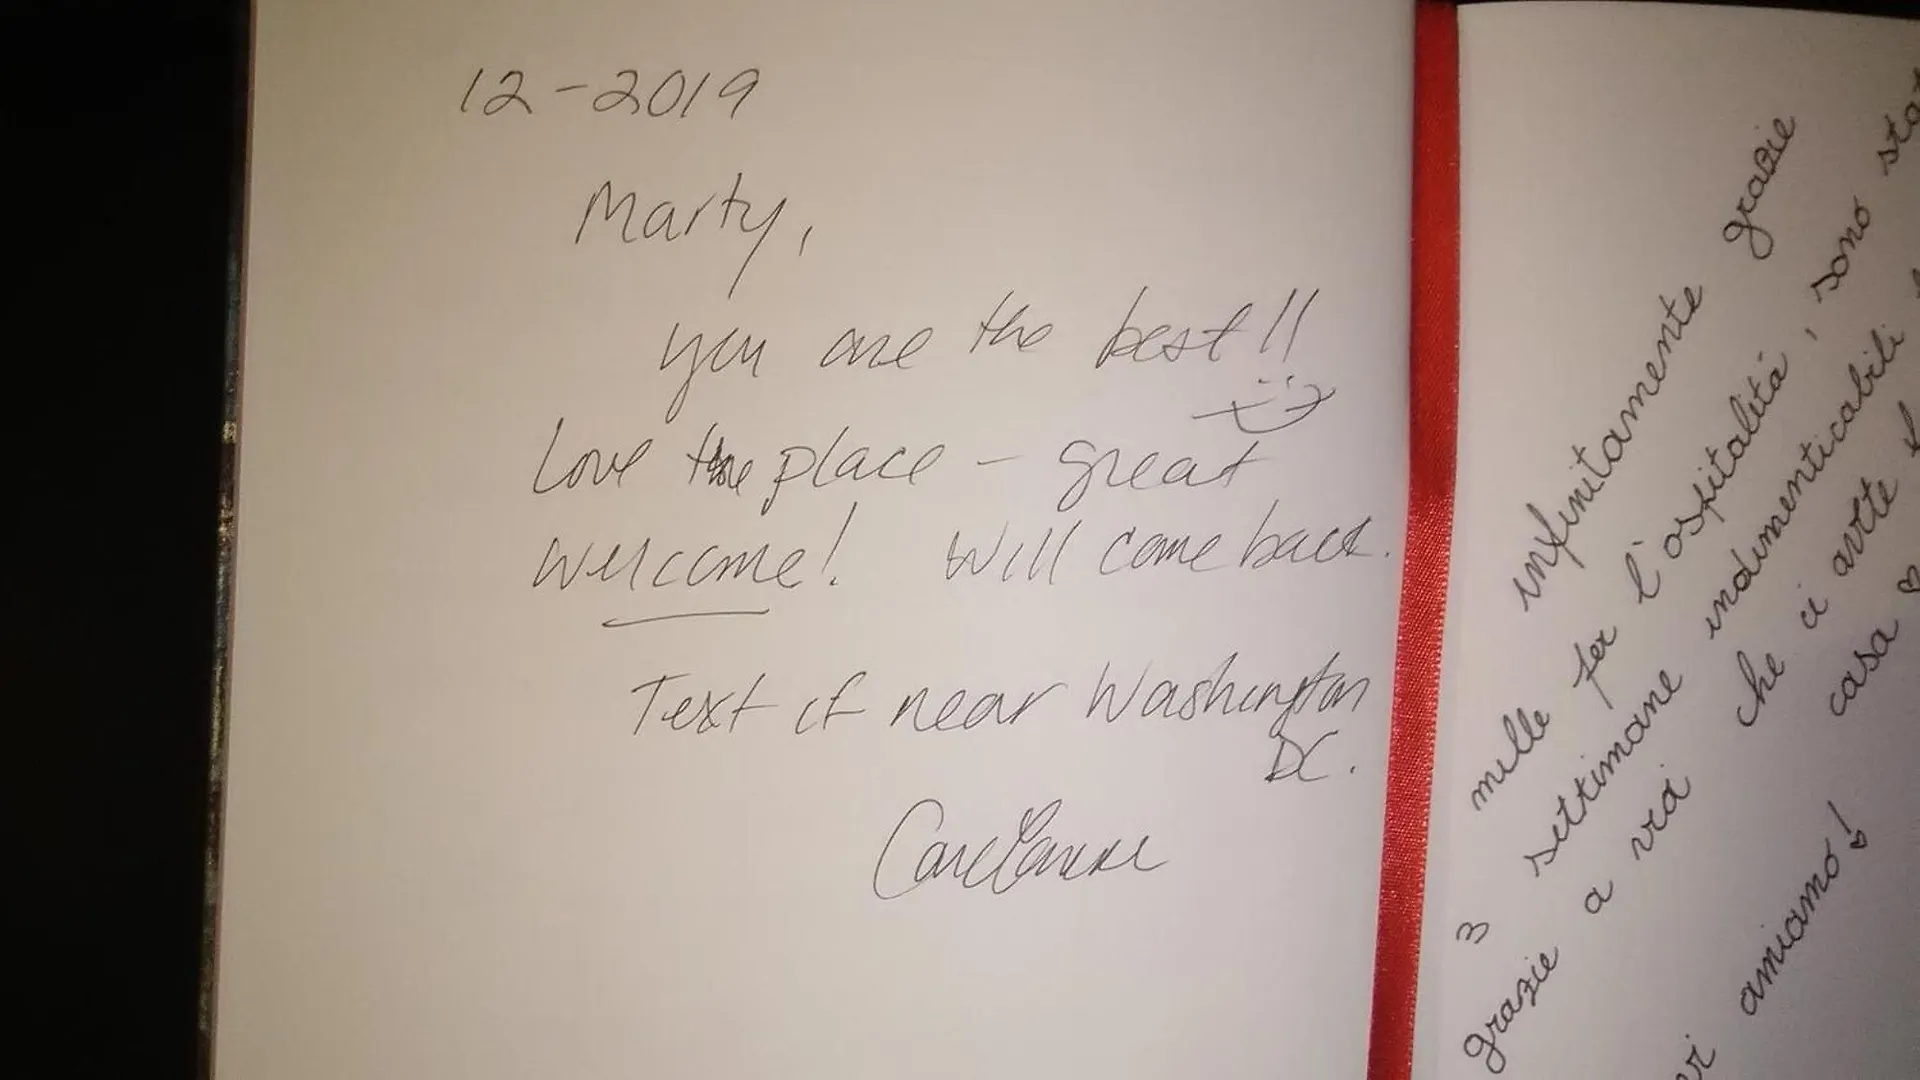 12-2019
Marty,
you are the best!!
Love the place - great
welcome! Will come back.
Text if near Washington
DC.
infinitamente grazie
mille per l'ospitalità, sono
3 settimane indimenticabili
grazie a voi che ci avete
casa
amiamo!